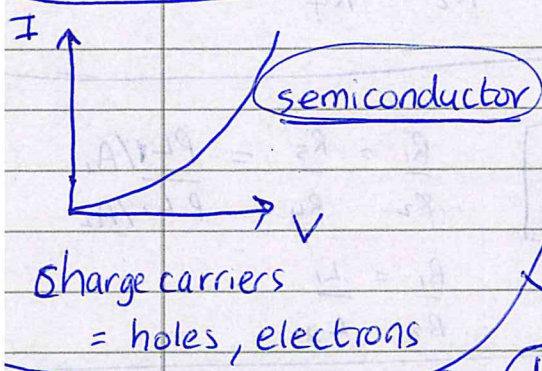 I
semiconductor
V
Charge carriers
= holes, electrons